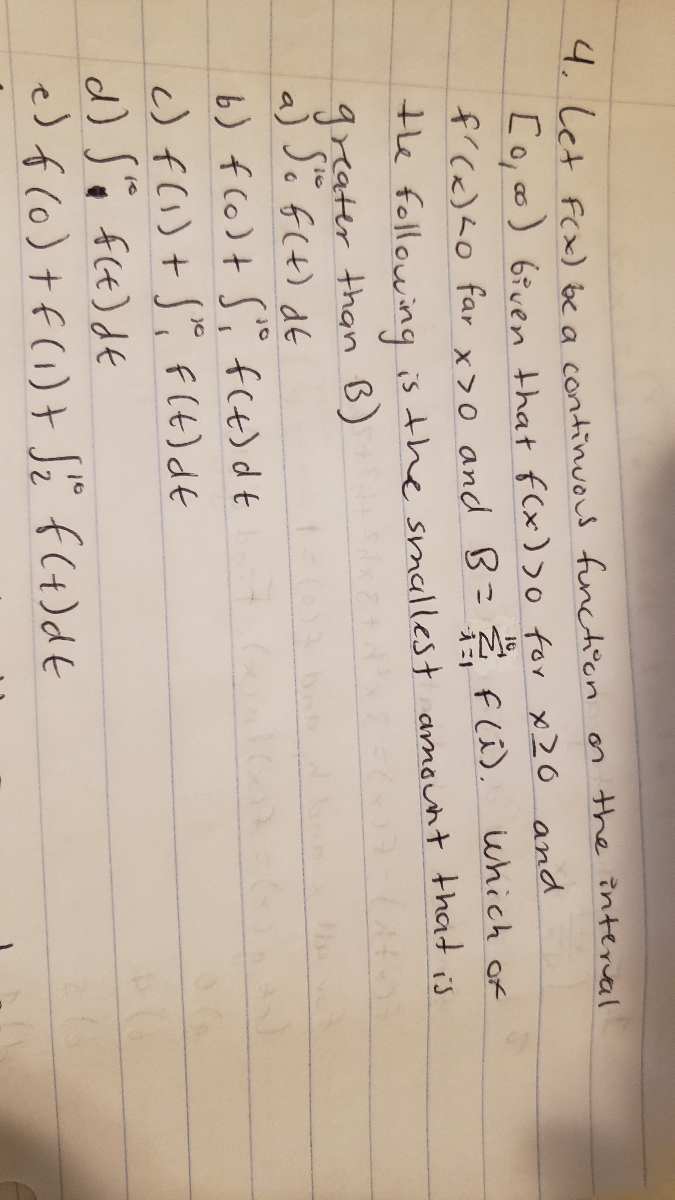 4. Let f(x) be a continuous function on the interval
[0, ∞) Given that f(x) > 0 for x ≥ 0 and
f'(x) < 0 far x > 0 and B = Σ_{i=1}^{10} f(i). Which of
the following is the smallest amount that is
greater than B)
a) ∫_0^{10} f(t) dt
b) f(0) + ∫_1^{10} f(t) dt
c) f(1) + ∫_1^{10} f(t) dt
d) ∫^{10} f(t) dt
e) f(0) + f(1) + ∫_2^{10} f(t) dt